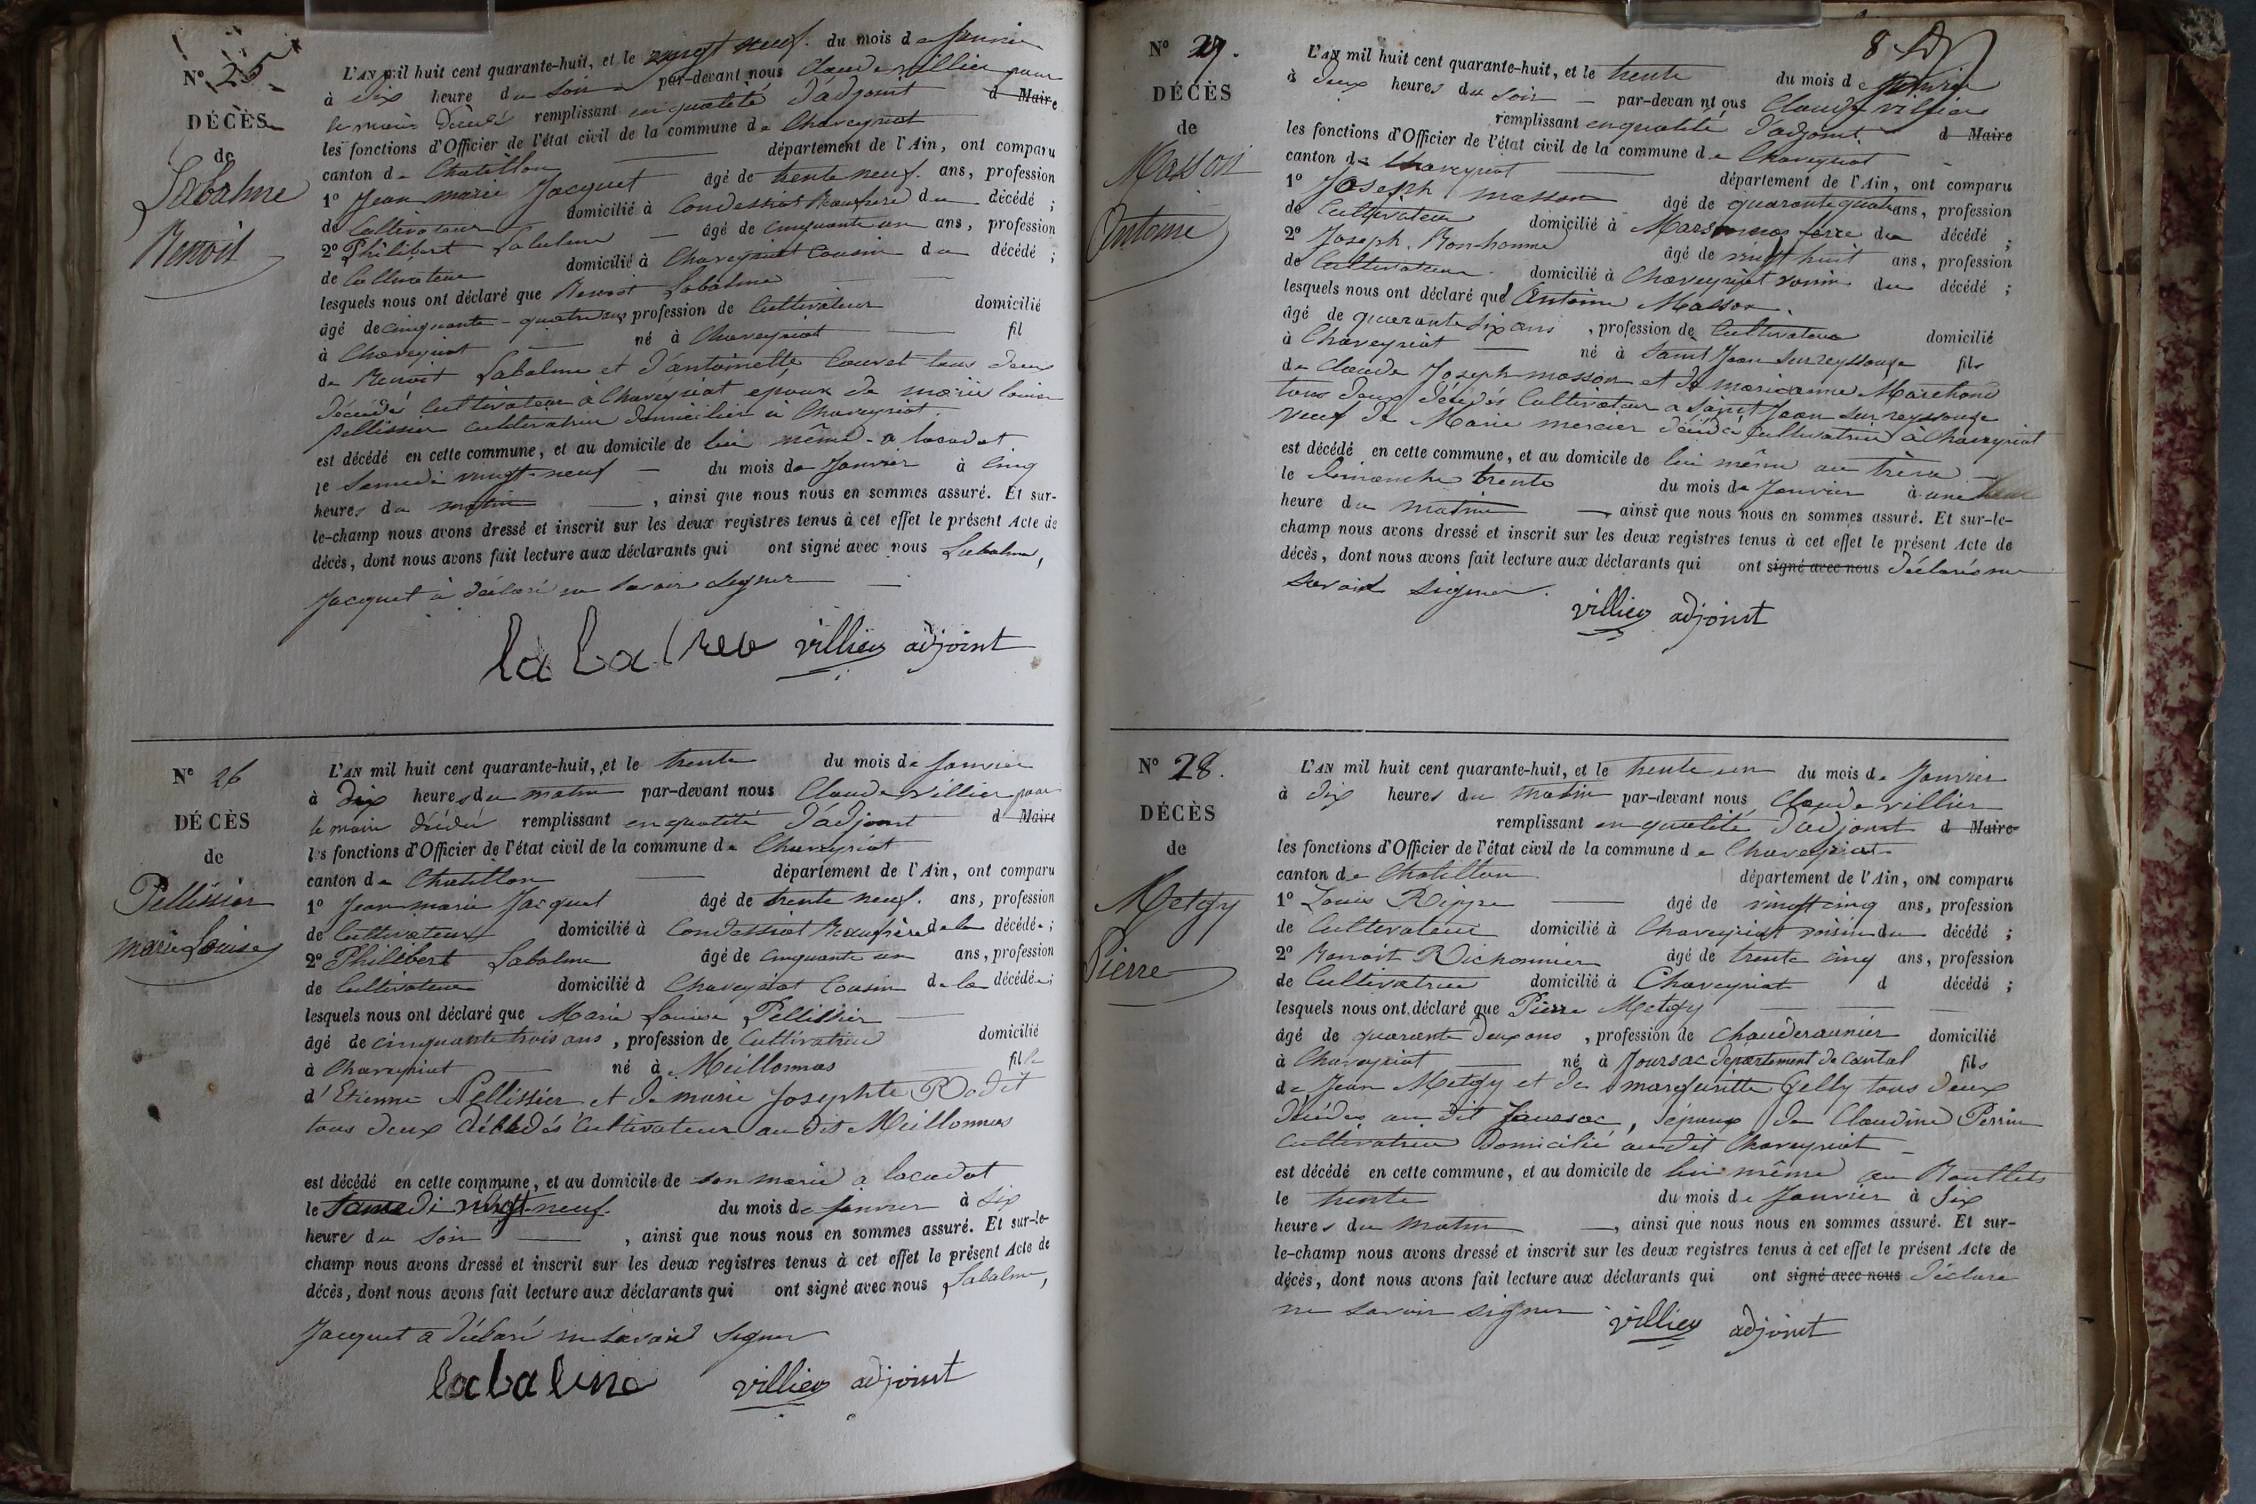 N° 25
DÉCÈS
de
Labalme
Benoit
L'AN mil huit cent quarante-huit, et le vingt neuf du mois de Janvier
à dix heure du soir par-devant nous Claude villier pour
le maire décédé remplissant en qualité d'adjoint d Maire
les fonctions d'Officier de l'état civil de la commune de Chaveyriat
canton de Chatillon département de l'Ain, ont comparu
1° Jean marie Jacquet âgé de trente neuf ans, profession
de Cultivateur domicilié à Condessiat Beaufrère du décédé ;
2° Philibert Labalme âgé de cinquante un ans, profession
de Cultivateur domicilié à Chaveyriat Cousin du décédé ;
lesquels nous ont déclaré que Benoit Labalme
âgé de cinquante-quatre ans profession de Cultivateur domicilié
à Chaveyriat né à Chaveyriat fil
de Benoit Labalme et d'antoinette Couvet tous deux
décédé Cultivateur à Chaveyriat epoux de marie louise
Pellissier cultivatrice domicilier a Chaveyriat
est décédé en cette commune, et au domicile de lui même a locadat
le Samedi vingt-neuf du mois de Janvier à Cinq
heures du matin , ainsi que nous nous en sommes assuré. Et sur-
le-champ nous avons dressé et inscrit sur les deux registres tenus à cet effet le présent Acte de
décès, dont nous avons fait lecture aux déclarants qui ont signé avec nous Labalme,
Jacquet à déclaré ne savoir signer
villier adjoint
N° 26
DÉCÈS
de
Pellissier
marie Louise
L'AN mil huit cent quarante-huit, et le trente du mois de Janvier
à dix heures du matin par-devant nous Claude villier pour
le maire décédé remplissant en qualité d'adjoint d Maire
les fonctions d'Officier de l'état civil de la commune de Chaveyriat
canton de Chatillon département de l'Ain, ont comparu
1° Jean marie Jacquet âgé de trente neuf ans, profession
de Cultivateur domicilié à Condessiat Beaufrère de la décédée ;
2° Philibert Labalme âgé de cinquante un ans, profession
de Cultivateur domicilié à Chaveyriat Cousin de la décédée ;
lesquels nous ont déclaré que Marie Louise Pellissier
âgé de cinquante trois ans, profession de Cultivatrice domicilié
à Chaveyriat né à Meillonnas fille
d'Etienne Pellissier et de marie Josephte Rodit
tous deux décédés Cultivateur au dit Meillonnas
est décédé en cette commune, et au domicile de son marie a locadat
le Samedi vingt-neuf du mois de janvier à Six
heure du Soir , ainsi que nous nous en sommes assuré. Et sur-le-
champ nous avons dressé et inscrit sur les deux registres tenus à cet effet le présent Acte de
décès, dont nous avons fait lecture aux déclarants qui ont signé avec nous Labalme,
Jacquet a déclaré ne savoir signer
labalme villier adjoint
8
N° 27.
DÉCÈS
de
Masson
Antoine
L'AN mil huit cent quarante-huit, et le trente du mois de Janvier
à deux heures du Soir par-devan nt ous Claude villier
remplissant en qualité d'adjoint d Maire
les fonctions d'Officier de l'état civil de la commune de Chaveyriat
canton de Chaveyriat département de l'Ain, ont comparu
1° Joseph masson âgé de quarante quatre ans, profession
de Cultivateur domicilié à Marsonnas frère du décédé ;
2° Joseph Bon-homme âgé de vingt huit ans, profession
de Cultivateur domicilié à Chaveyriat voisin du décédé ;
lesquels nous ont déclaré que Antoine Masson
âgé de quarante six ans, profession de Cultivateur domicilié
à Chaveyriat né à Saint Jean sur reyssouze fils
de Claude Joseph masson et de marie anne Marchand
tous deux décédés Cultivateur a Saint Jean sur reyssouze
veuf de Marie mercier décédé Cultivatrice à Chaveyriat
est décédé en cette commune, et au domicile de lui même au
le Dimanche trente du mois de Janvier à une
heure du matin ainsi que nous nous en sommes assuré. Et sur-le-
champ nous avons dressé et inscrit sur les deux registres tenus à cet effet le présent Acte de
décès, dont nous avons fait lecture aux déclarants qui ont signé avec nous déclarés ne
savoir signer.
villier adjoint
N° 28.
DÉCÈS
de
Metgy
Pierre
L'AN mil huit cent quarante-huit, et le trente un du mois de Janvier
à dix heures du matin par-devant nous Claude villier
remplissant en qualité d'adjoint d Maire
les fonctions d'Officier de l'état civil de la commune de Chaveyriat
canton de Chatillon département de l'Ain, ont comparu
1° Louis Rippe âgé de vingt cinq ans, profession
de Cultivateur domicilié à Chaveyriat voisin du décédé ;
2° Benoit Richonnier âgé de trente cinq ans, profession
de Cultivatrice domicilié à Chaveyriat d décédé ;
lesquels nous ont déclaré que Pierre Metgy
âgé de quarante deux ans, profession de Chauderaunier domicilié
à Chaveyriat né à Joursac département de Cantal fils
de Jean Metgy et de marguritte Gelly tous deux
décédés au dit Joursac, époux de Claudine Perrin
Cultivatrice domicilié au dit Chaveyriat
est décédé en cette commune, et au domicile de lui même au
le trente du mois de Janvier à Six
heures du matin , ainsi que nous nous en sommes assuré. Et sur-
le-champ nous avons dressé et inscrit sur les deux registres tenus à cet effet le présent Acte de
décès, dont nous avons fait lecture aux déclarants qui ont signé avec nous déclare
ne savoir signer
villier adjoint